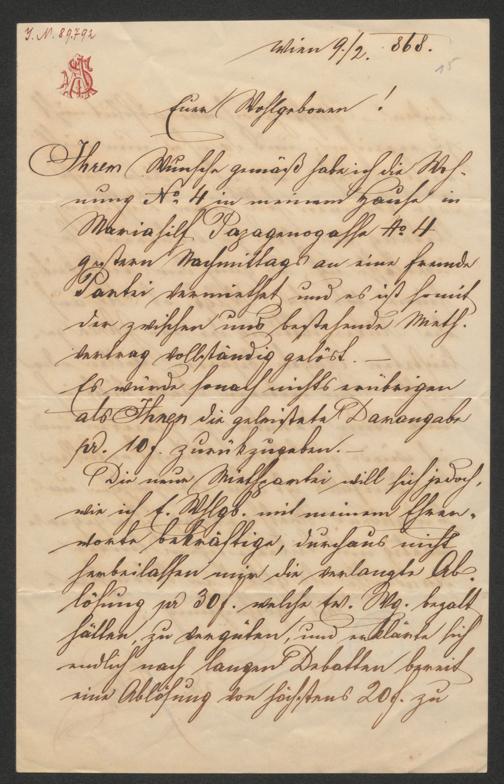 I.N. 89.792
Wien 9./2. 868.
15
Euer Wohlgeboren!
Ihrem Wunsche gemäß habe ich die Woh-
nung No 4 in meinem Hause in
Mariahilf Papagenogasse No 4
gestern Nachmittags an eine fremde
Partei vermiethet und es ist somit
der zwischen uns bestehende Mieth-
vertrag vollständig gelöst. —
Es würde sonach nichts erübrigen
als Ihnen die geleistete Darangabe
pr. 10 f. zurükzugeben. —
Die neue Miethpartei will sich jedoch,
wie ich E. Wlgb. mit meinem Ehren-
worte bekräftige, durchaus nicht
herbeilassen mir die verlangte Ab-
lösung pr 30 f. welche Ew. Wg. bezalt
hätten, zu vergüten, und erklärte sich
endlich nach langen Debatten bereit
eine Ablösung von höchstens 20 f. zu